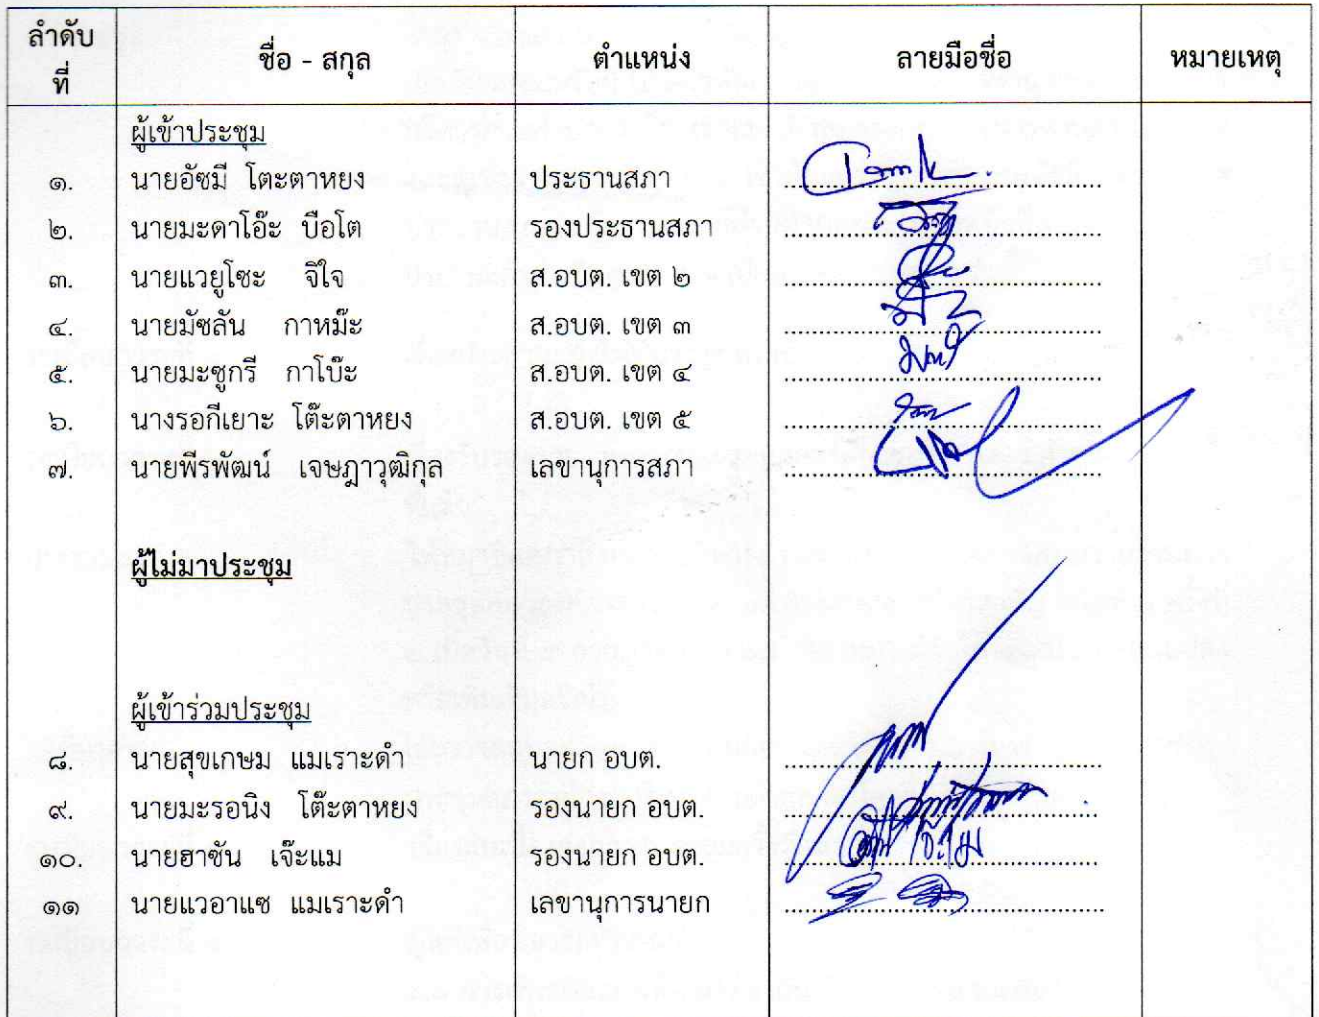 ลำดับที่ ชื่อ - สกุล ตำแหน่ง ลายมือชื่อ หมายเหตุ
ผู้เข้าประชุม
๑. นายอัซมี โตะตาหยง ประธานสภา
๒. นายมะดาโอ๊ะ บือโต รองประธานสภา
๓. นายแวยูโซะ จิใจ ส.อบต. เขต ๒
๔. นายมัซลัน กาหม๊ะ ส.อบต. เขต ๓
๕. นายมะซูกรี กาโบ๊ะ ส.อบต. เขต ๔
๖. นางรอกีเยาะ โต๊ะตาหยง ส.อบต. เขต ๕
๗. นายพีรพัฒน์ เจษฎาวุฒิกุล เลขานุการสภา
ผู้ไม่มาประชุม
ผู้เข้าร่วมประชุม
๘. นายสุขเกษม แมเราะดำ นายก อบต.
๙. นายมะรอนิง โต๊ะตาหยง รองนายก อบต.
๑๐. นายฮาซัน เจ๊ะแม รองนายก อบต.
๑๑ นายแวอาแซ แมเราะดำ เลขานุการนายก